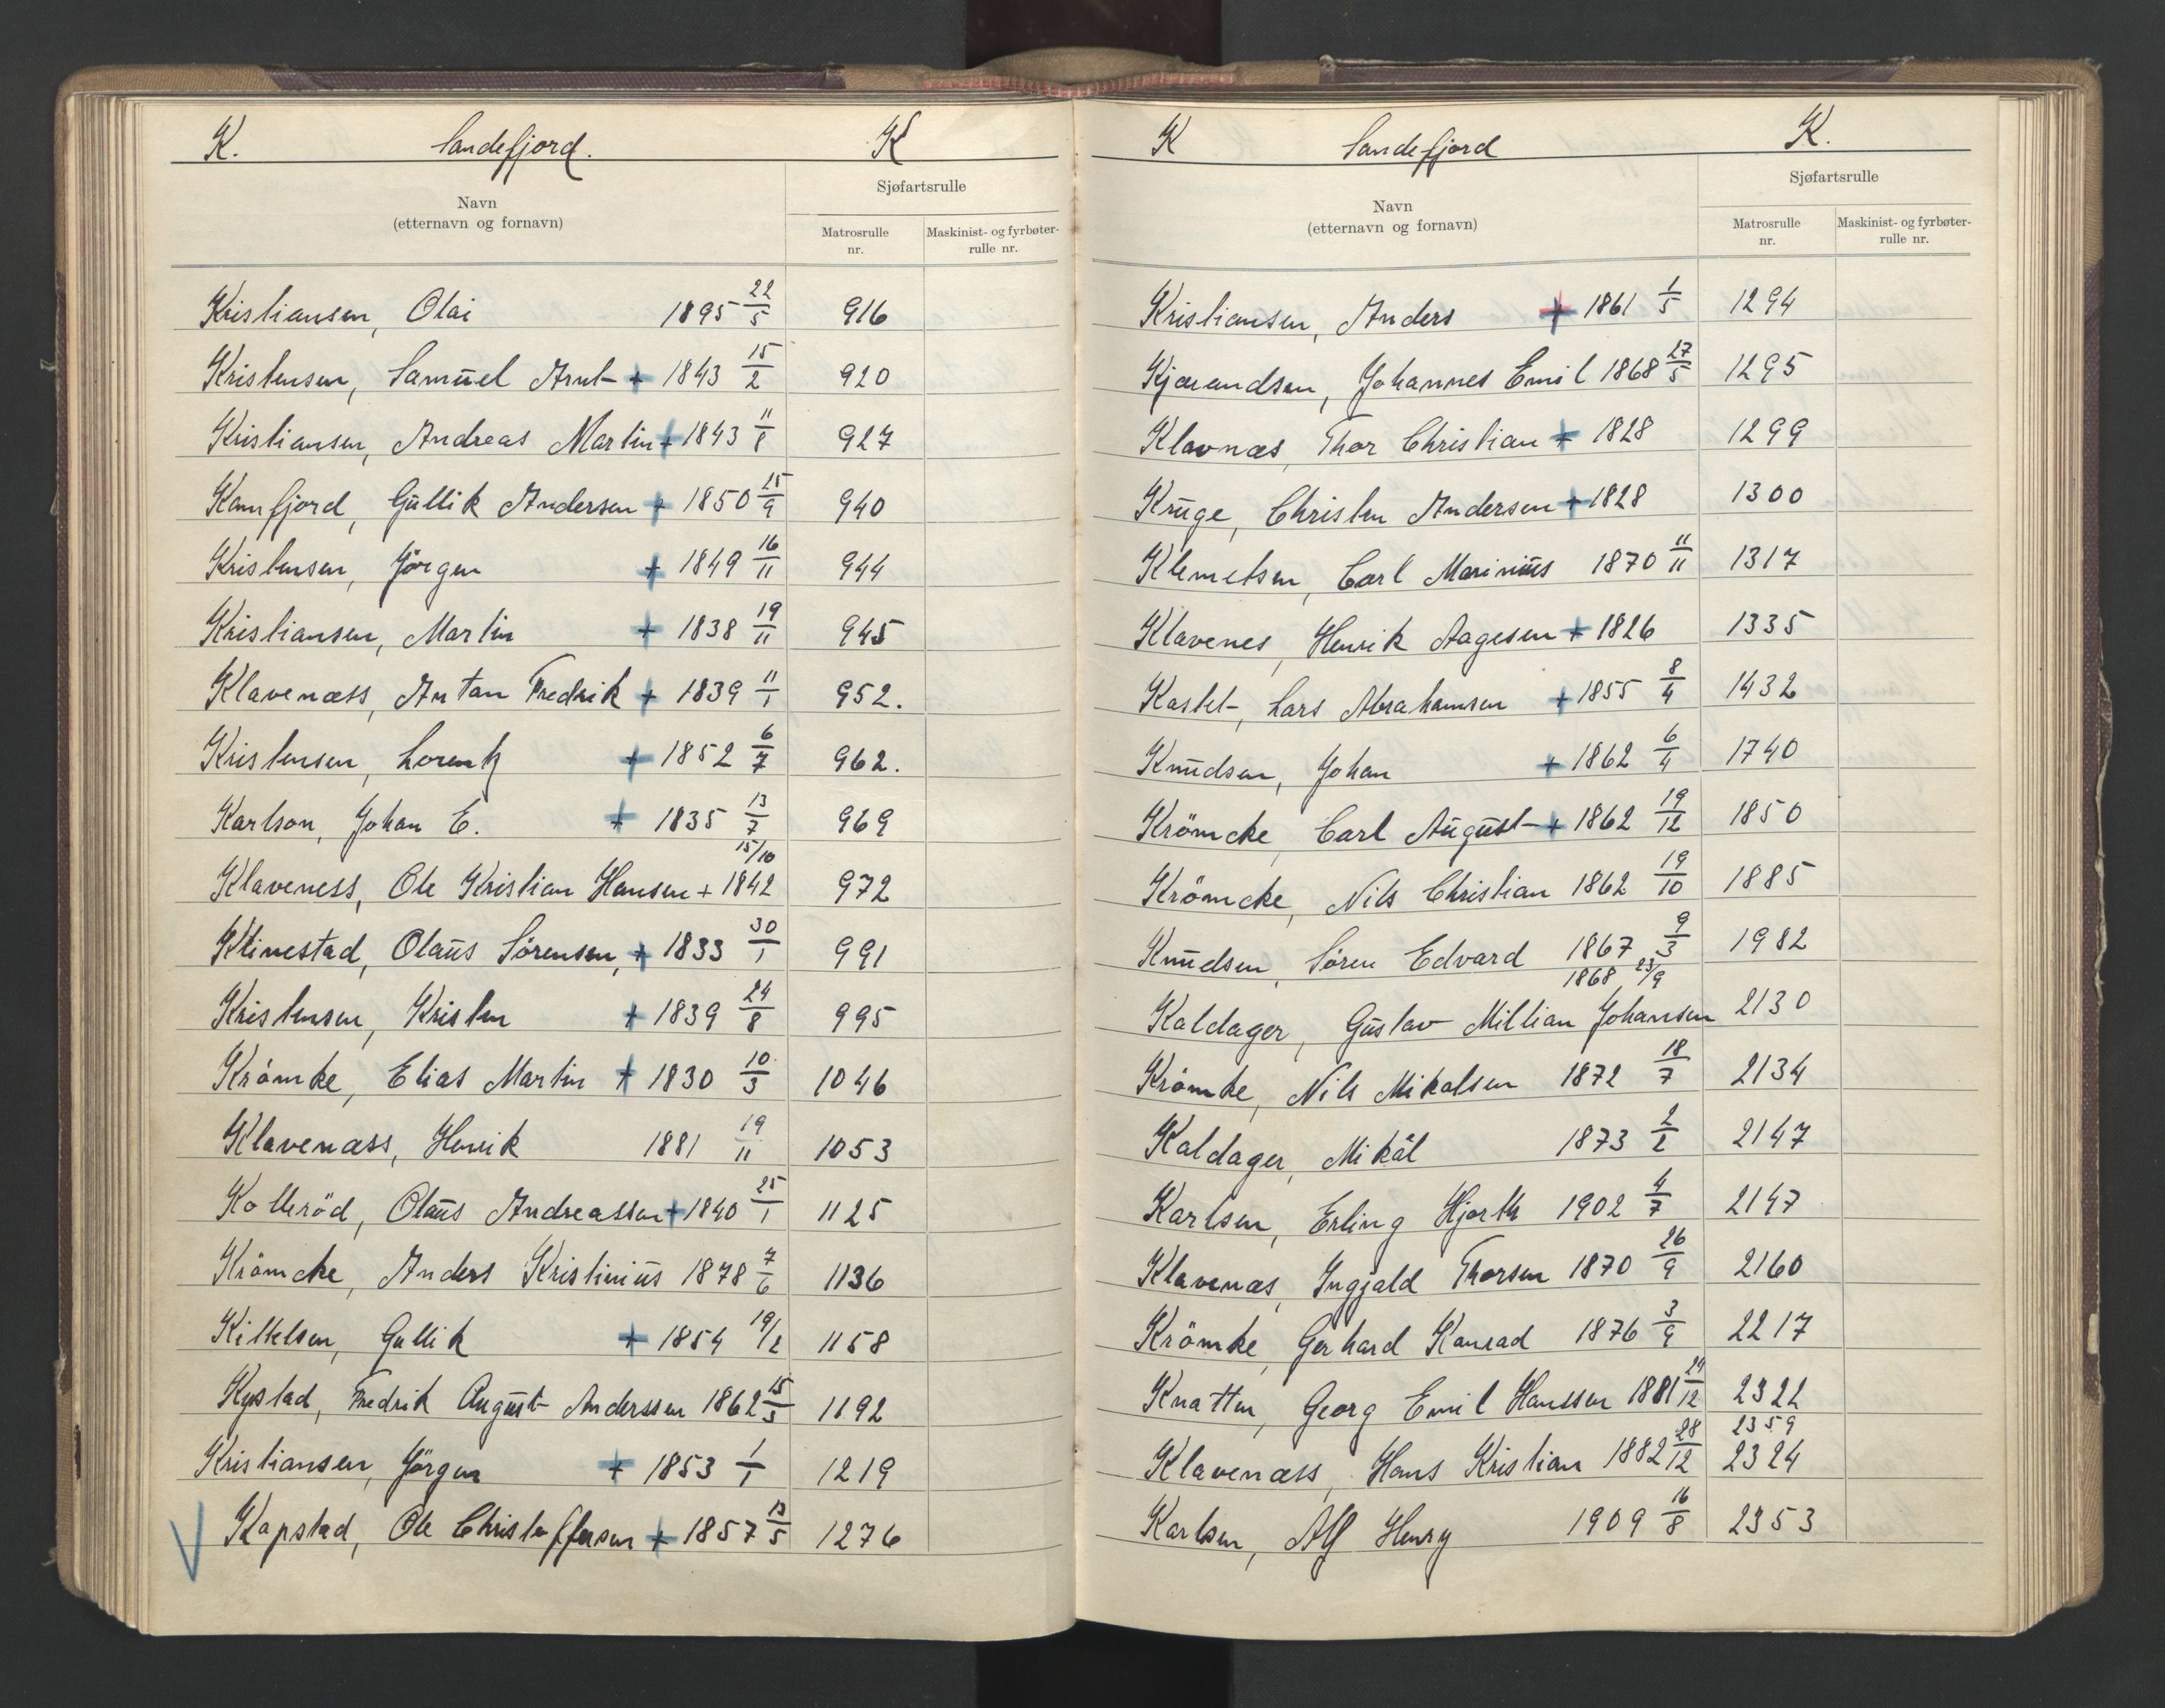 K. Sandefjord. K
Navn
(etternavn og fornavn)
Sjøfartsrulle
Matrosrulle
nr.
Maskinist- og fyrbøter-
rulle nr.
Kristiansen, Olai 1895 22/5 916
Kristensen, Samuel Arnt + 1843 15/2 920
Kristiansen, Andreas Martin + 1843 11/8 927
Kamfjord, Gullik Andersen + 1850 15/9 940
Kristensen, Jörgen + 1849 16/11 944
Kristiansen, Martin + 1838 19/11 945
Klavenæss, Antan Fredrik + 1839 11/1 952.
Kristensen, Lorentz + 1852 6/7 962.
Karlson, Johan E. + 1835 13/7 969
Klaveness, Ole Kristian Hansen + 1842 15/10 972
Klinestad, Olaus Sörensen, + 1833 30/1 991
Kristensen, Kristen + 1839 24/8 995
Krömke, Elias Martin + 1830 10/3 1046
Klavenæss, Henrik 1881 19/11 1053
Kolleröd, Olaus Andreassen + 1840 25/1 1125
Krömcke, Anders Kristinius 1878 7/6 1136
Kittelsen, Gullik + 1854 19/2 1158
Kystad, Fredrik August Anderssen 1862 15/3 1192
Kristiansen, Jörgen + 1853 1/1 1219
V Kapstad, Ole Christoffersen + 1857 13/5 1276
K Sandefjord K.
Navn
(etternavn og fornavn)
Sjøfartsrulle
Matrosrulle
nr.
Maskinist- og fyrbøter-
rulle nr.
Kristiansen, Anders + 1861 1/5 1294
Kjærandsen, Johannes Emil 1868 27/5 1295
Klavnæs, Thor Christian + 1828 1299
Kruge, Christen Andersen + 1828 1300
Klemetsen, Carl Marinius 1870 11/11 1317
Klavenes, Henrik Aagesen + 1826 1335
Kastet, Lars Abrahamsen + 1855 8/4 1432
Knudsen, Johan + 1862 6/4 1740
Krömcke, Carl August + 1862 19/12 1850
Krömcke, Nils Christian 1862 19/10 1885
Knudsen, Sören Edvard 1867 9/3 1982
1868 23/9
Kaldager, Gustav Millian Johansen 2130
Krömke, Nils Mikalsen 1872 18/7 2134
Kaldager, Mikal 1873 2/2 2147
Karlsen, Erling Hjorth 1902 4/7 2147
Klavenæs, Ingjald Thorsen 1870 26/9 2160
Krömke, Gerhard Konrad 1876 3/9 2217
Knatten, Georg Emil Hanssen 1881 29/12 2322
2359
Klavenæss, Hans Kristian 1882 28/12 2324
Karlsen, Alf Henry 1909 16/8 2353